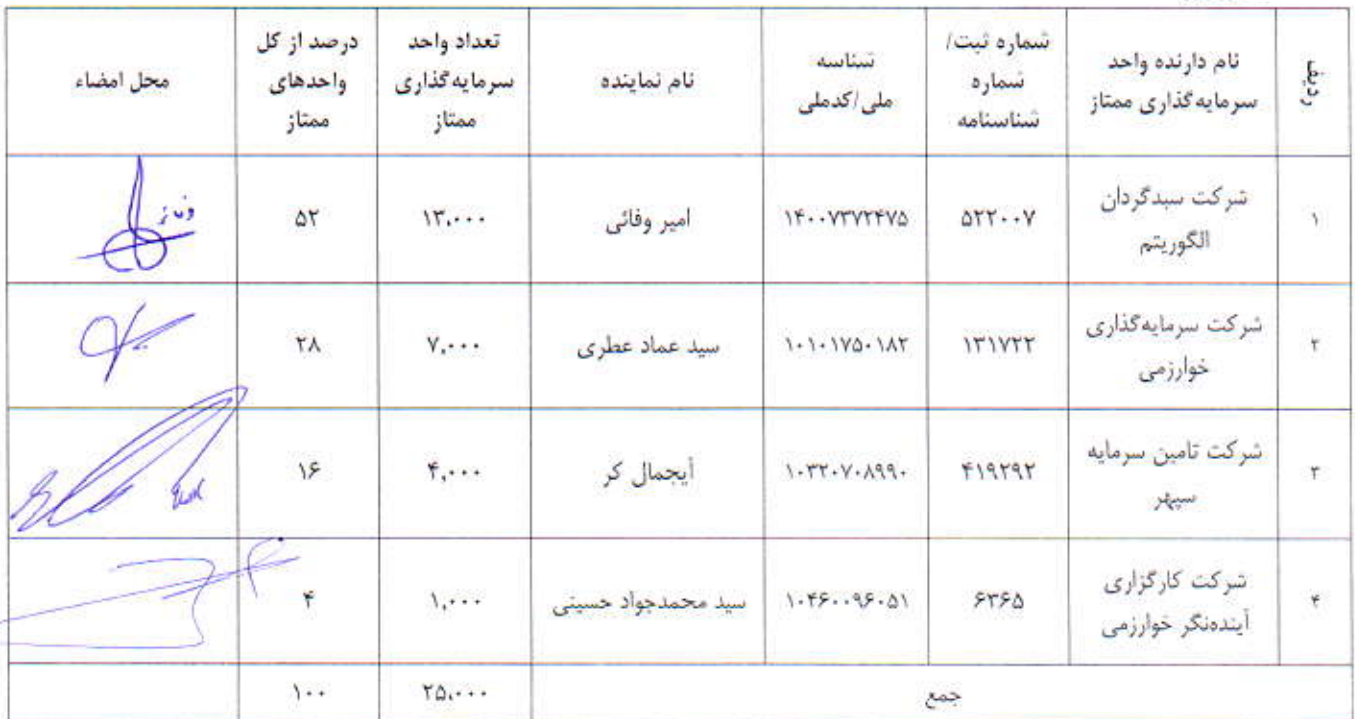 ردیف
نام دارنده واحد
سرمایه‌گذاری ممتاز
شماره ثبت/
شماره
شناسنامه
شناسه
ملی/کدملی
نام نماینده
تعداد واحد
سرمایه‌گذاری
ممتاز
درصد از کل
واحدهای
ممتاز
محل امضاء
۱
شرکت سبدگردان
الگوریتم
۵۲۲۰۰۷
۱۴۰۰۷۳۷۲۴۷۵
امیر وفائی
۱۳،۰۰۰
۵۲
۲
شرکت سرمایه‌گذاری
خوارزمی
۱۳۱۷۲۲
۱۰۱۰۱۷۵۰۱۸۲
سید عماد عطری
۷،۰۰۰
۲۸
۳
شرکت تامین سرمایه
سپهر
۴۱۹۲۹۲
۱۰۳۲۰۷۰۸۹۹۰
آیجمال کر
۴،۰۰۰
۱۶
۴
شرکت کارگزاری
آینده‌نگر خوارزمی
۶۳۶۵
۱۰۴۶۰۰۹۶۰۵۱
سید محمدجواد حسینی
۱،۰۰۰
۴
جمع
۲۵،۰۰۰
۱۰۰